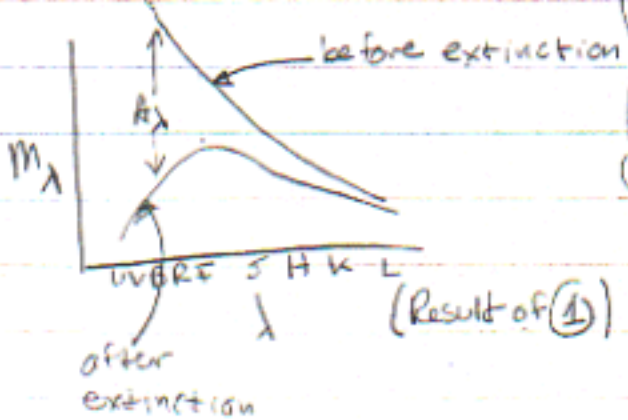 before extinction
Aλ
mλ
UVBRI J H K L
λ
(Result of ①)
after
extinction